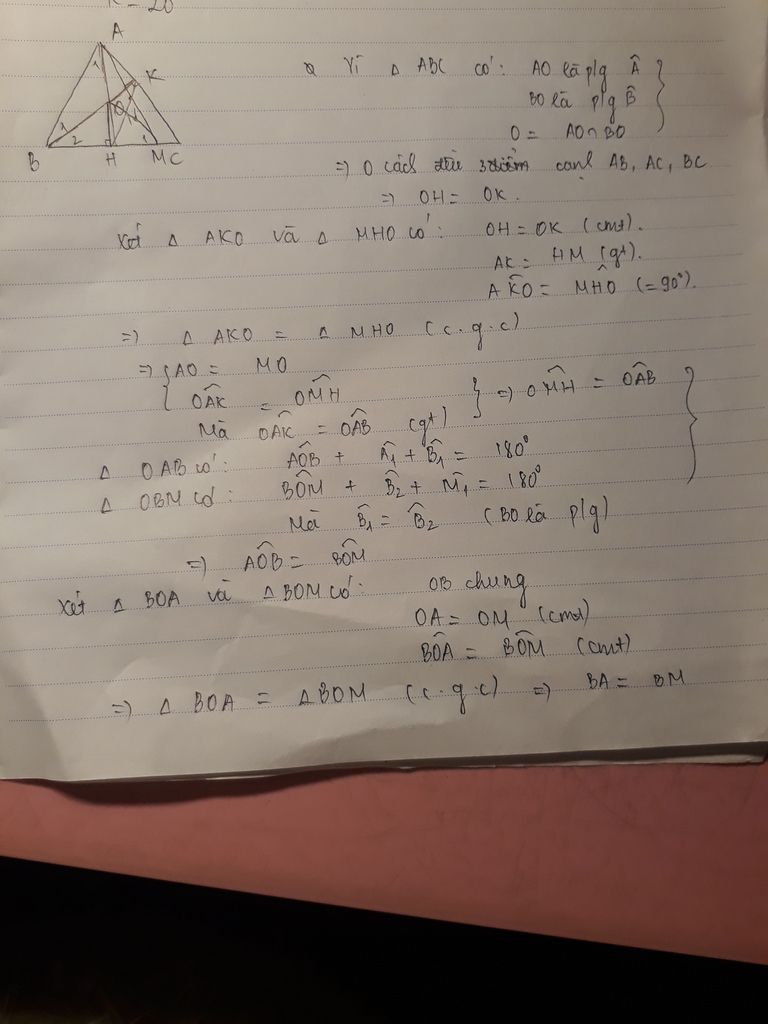 = 20
A
K
O
B
H
M C
1
2
1
1
Vì Δ ABC có: AO là p/g Â
BO là p/g B̂
O = AO ∩ BO
=> O cách đều cạnh AB, AC, BC
=> OH = OK.
Xét Δ AKO và Δ MHO có: OH = OK (cmt).
AK = HM (gt).
AK̂O = MĤO (= 90°).
=> Δ AKO = Δ MHO (c.g.c)
=> { AO = MO
OÂK = OM̂H } => OM̂H = OÂB
Mà OÂK = OÂB (gt)
Δ OAB có: AÔB + Â₁ + B̂₁ = 180°
Δ OBM có: BÔM + B̂₂ + M̂₁ = 180°
Mà B̂₁ = B̂₂ (BO là p/g)
=> AÔB = BÔM
Xét Δ BOA và Δ BOM có: OB chung
OA = OM (cmt)
BÔA = BÔM (cmt)
=> Δ BOA = Δ BOM (c.g.c) => BA = BM